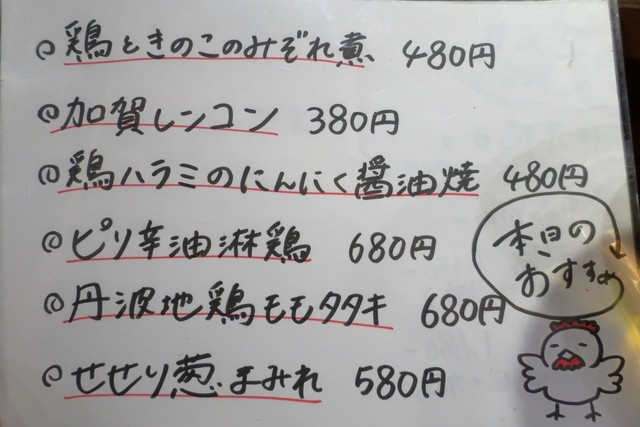 鶏ときのこのみぞれ煮 480円
加賀レンコン 380円
鶏ハラミのにんにく醤油焼 480円
ピリ辛油淋鶏 680円
丹波地鶏モモタタキ 680円
せせり葱まみれ 580円
本日の
おすすめ